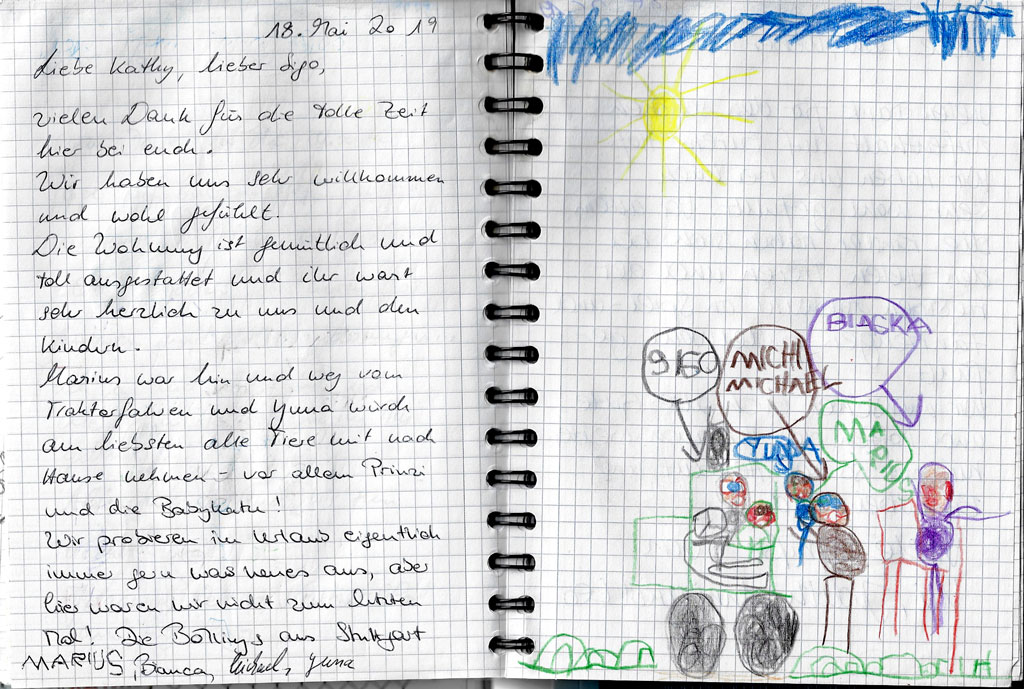 18. Mai 2019
Liebe Kathy, lieber Sigo,
vielen Dank für die tolle Zeit
hier bei euch.
Wir haben uns sehr willkommen
und wohl gefühlt.
Die Wohnung ist gemütlich und
toll ausgestattet und ihr wart
sehr herzlich zu uns und den
Kindern.
Marius war hin und weg vom
Traktorfahren und Yuna würde
am liebsten alle Tiere mit nach
Hause nehmen - vor allem Prinzi
und die Babykatze!
Wir probieren im Urlaub eigentlich
immer gern was neues aus, aber
hier waren wir nicht zum letzten
Mal! Die Böttings aus Stuttgart
MARIUS, Bianca, Michael, Yuna
SIGO
MICHI
MICHAEL
BIACKA
YUNA
MARIUS